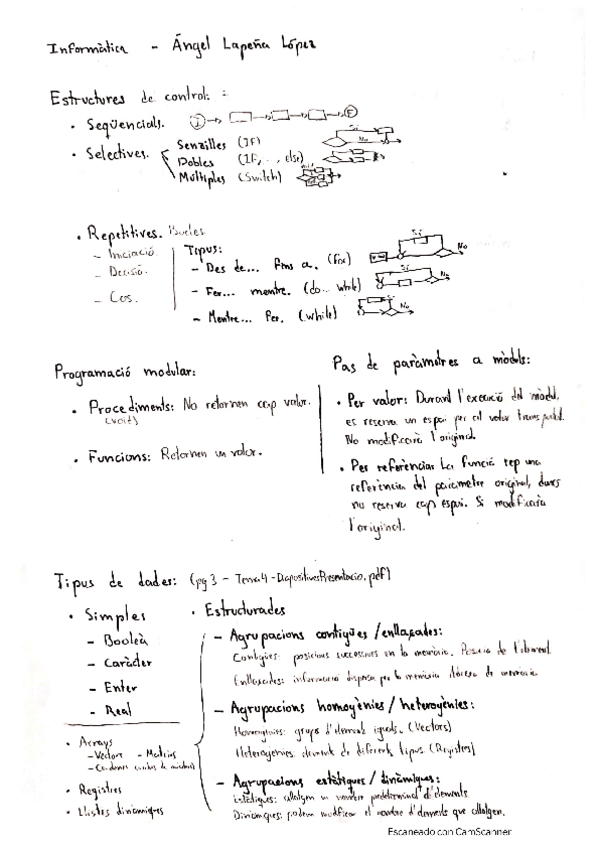 Informàtica - Ángel Lapeña López
Estructures de control:
• Seqüencials.
• Selectives.
Senzilles (IF)
Dobles (IF, .., else)
Múltiples (Switch)
• Repetitives. Bucles
- Iniciació
- Decisió.
- Cos.
Tipus:
- Des de... fins a. (for)
- Fer... mentre. (do.. while)
- Mentre... Fer. (while)
Si
No
Si
No
No
Programació modular:
• Procediments: No retornen cap valor.
(void)
• Funcions: Retornen un valor.
Pas de paràmetres a mòduls:
• Per valor: Durant l'execució del mòdul,
es reserva un espai per al valor
No modificarà l'original.
• Per referència: La funció rep una
referència del paràmetre original, doncs
no reserva cap espai. Si modificarà
l'original.
Tipus de dades: (pg 3 - Tema4-DiapositivesPresentacio.pdf)
• Simples
- Booleà
- Caràcter
- Enter
- Real
• Arrays
- Vectors - Matrius
- Cadenes
• Registres
• Llistes dinàmiques
• Estructurades
- Agrupacions contigües / enllaçades:
Contigües: posicions successives en la memòria.
Enllaçades: informació dispersa per la memòria
- Agrupacions homogènies / heterogènies:
Homogènies: grups d'elements iguals. (Vectors)
Heterogènies: elements de diferents tipus. (Registres)
- Agrupacions estàtiques / dinàmiques:
Estàtiques: allotgen un nombre predeterminat d'elements
Dinàmiques: poden modificar el nombre d'elements que allotgen.
Escaneado con CamScanner